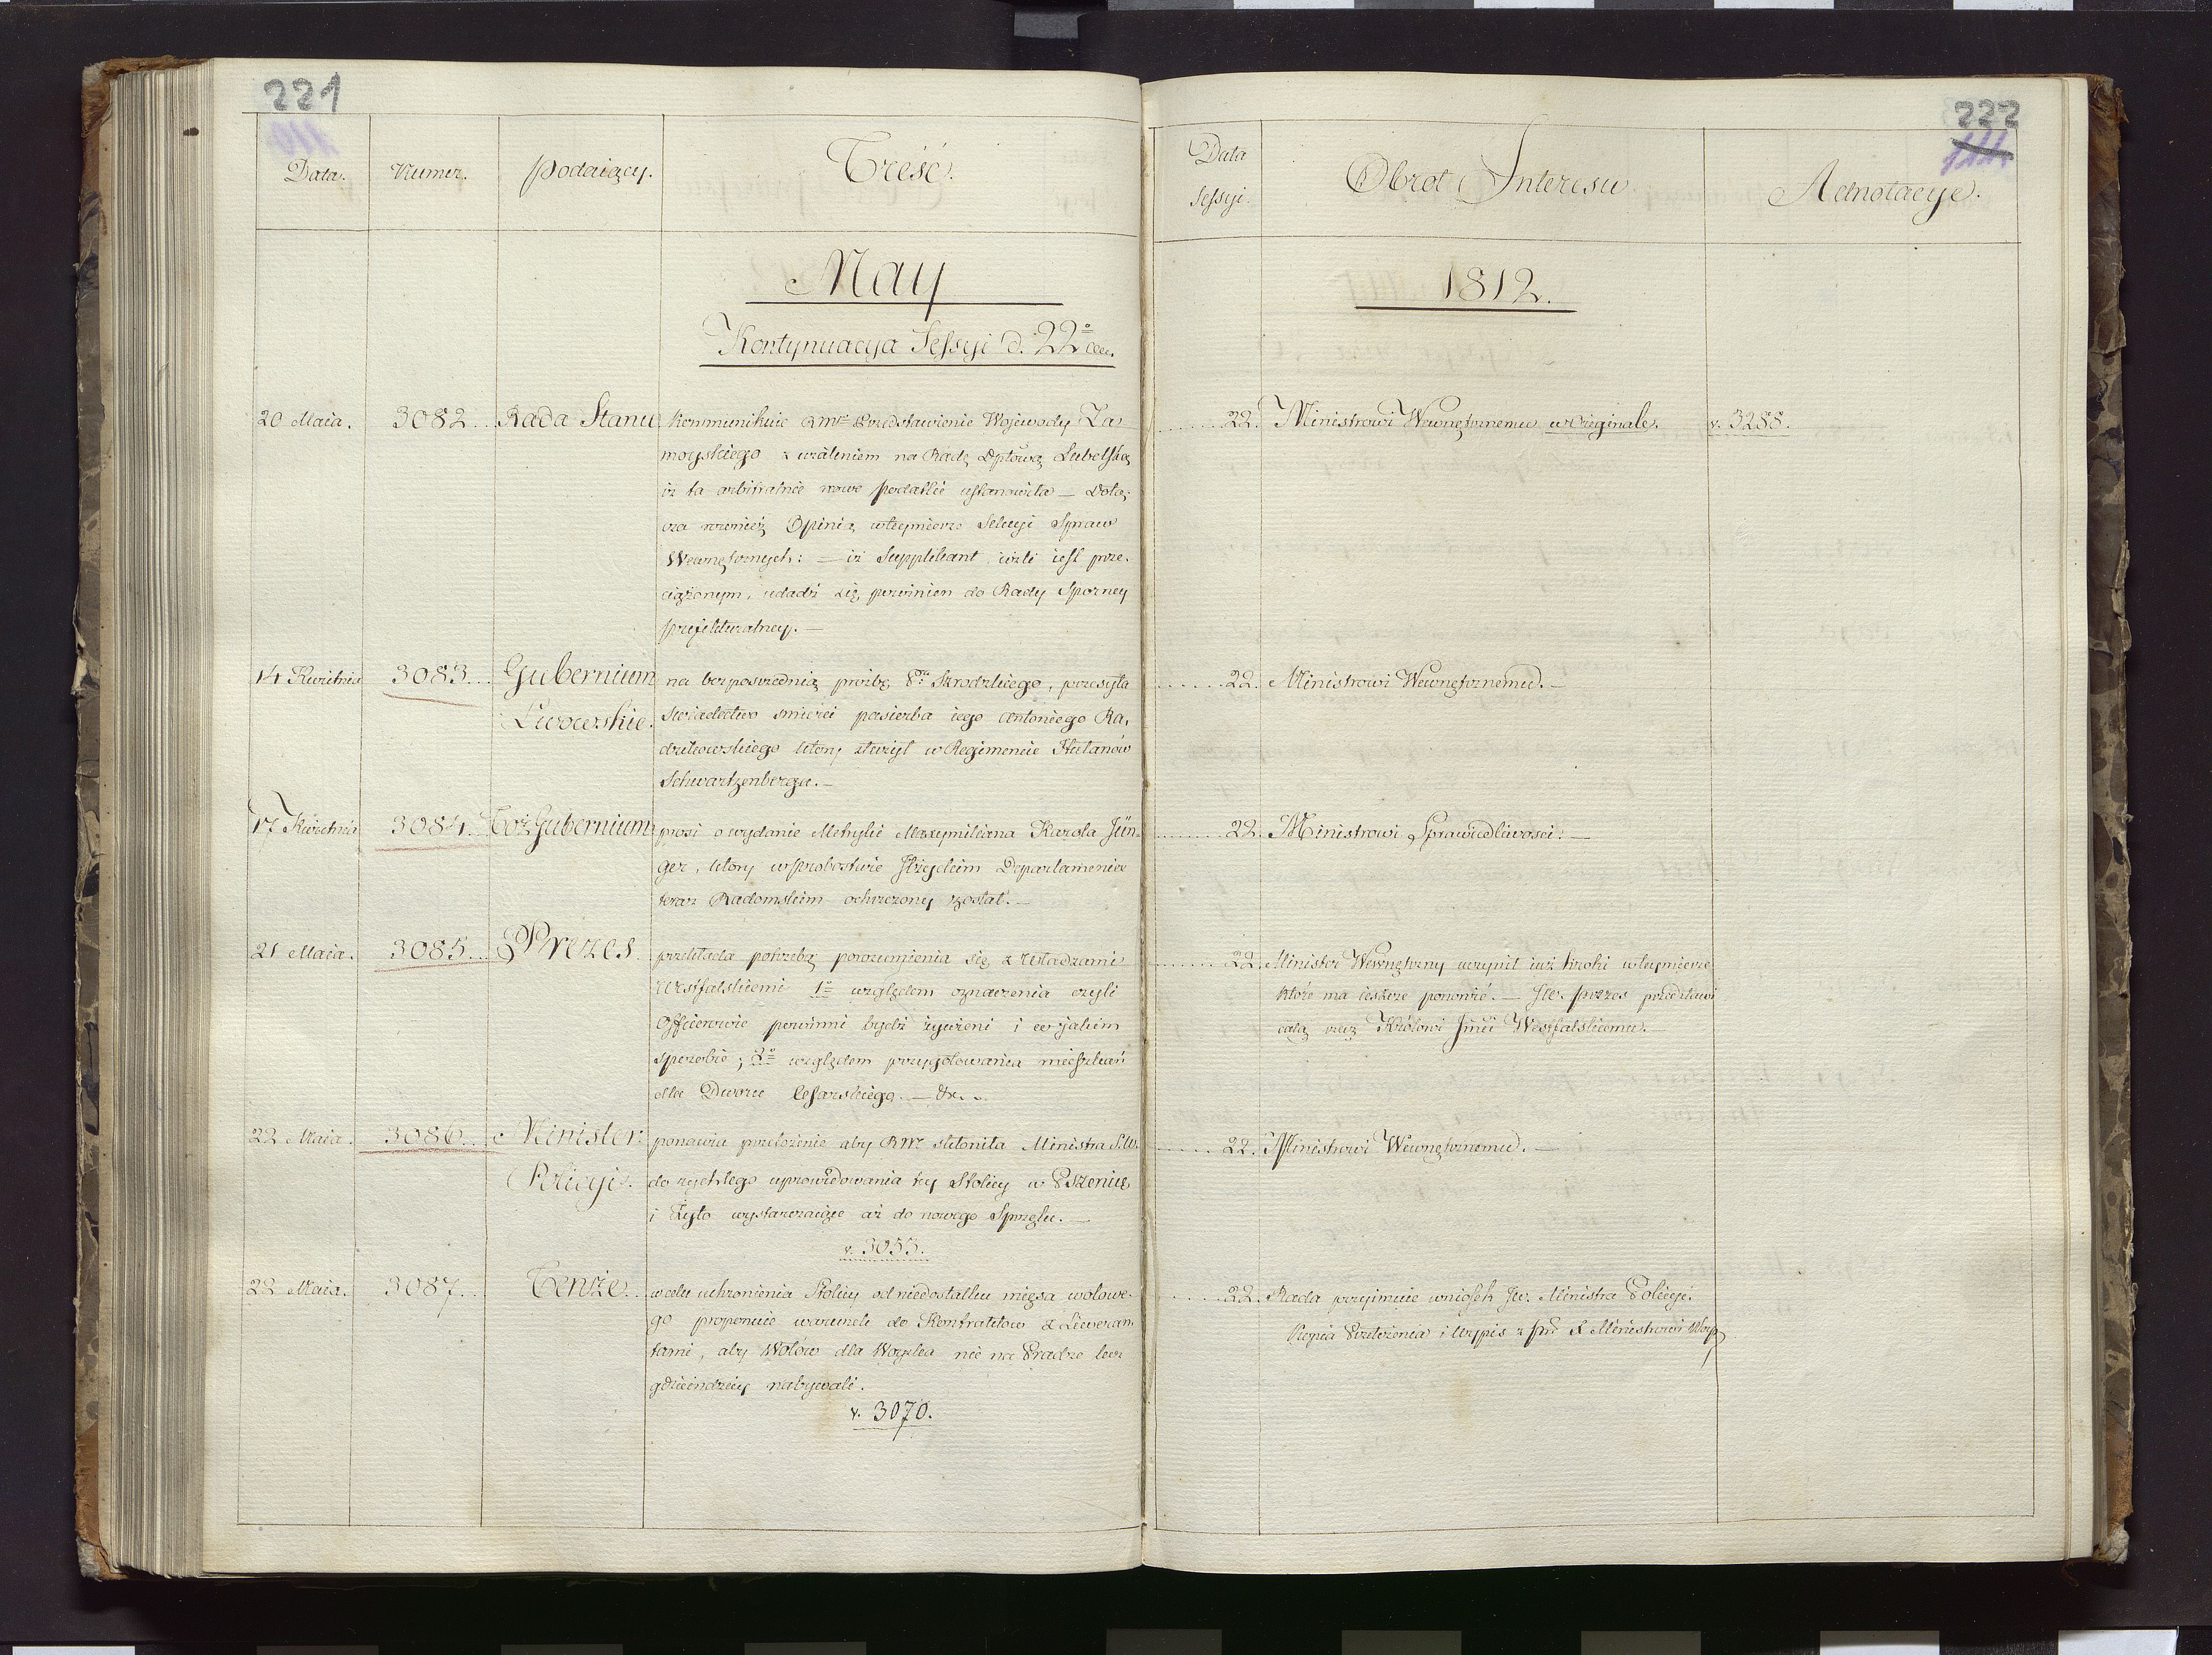 221
110
Data.
Numer.
Podaiący.
Treść.
May
Kontynuacya Sessyi d. 22º
20 Maia.
3082
Rada Stanu
kommunikuie RMr Przedstawienie Wojewody Za
moyskiego z użaleniem na Radę Dptową Lubelską
iż ta arbitralnie nowe podatki ustanowiła — Dołą-
cza również Opinią wteymierze Sekcyi Spraw
Wewnętrznych: — iż Supplikant, ieżli iest prze-
ciążonym, udadź się powinien do Rady Sporney
prefekturalney. —
14 Kwietnia
3083
Gubernium
Lwowskie.
na bezposrednią prożbę Skrodzkiego, przesyła
Swiadectwo śmierci pasierba iego Antoniego Ra-
dzikowskiego ktory służył w Regimencie Hułanów
Schwartzenberga. —
17 Kwietnia
3084
Toż Gubernium
prosi o wydanie Metryki Maxymiliana Karola Jün-
ger, ktory w Probostwie Departamencie
teraz Radomskim ochrzczony został. —
21 Maia.
3085
Prezes
przekłada potrzebę porozumienia się z Władzami
Westfalskiemi 1º względem oznaczenia czyli
Officerowie powinni bydź żywieni i w jakim
sposobie; 2º względem przygotowania mieszkań
dla Dworu Cesarskiego. — &c.
22 Maia.
3086
Minister
Policyi.
ponawia przełożenie aby RMr skłoniła Ministra S.W.
do rychłego uprowidowania tey Stolicy w Pszenicę
i Żyto wystarczaiące aż do nowego Sprzętu. —
v. 3053.
22 Maia.
3087
Tenże
w celu uchronienia Stolicy od niedostatku mięsa wołowe-
go proponuie warunek do Kontraktow z Liweran-
tami, aby Wołów dla Woyska nie na Pradze lecz
gdzieindziey nabywali.
v. 3070.
222
111
Data
Sessyi.
Obrot Interesu
Adnotacye.
1812.
22. Ministrowi Wewnętrznemu w Originale.
v. 3288.
22. Ministrowi Wewnętrznemu. —
22. Ministrowi Sprawiedliwości: —
22. Minister Wewnętrzny uczynił iuż kroki wteymierze
które ma ieszcze ponowić. — JW. Prezes przedstawi
całą rzecz Królowi Jmci Westfalskiemu. —
22. Ministrowi Wewnętrznemu. —
22. Rada przyimuie wniosek JW. Ministra Policyi.
Kopia Przełożenia i Wypis z Ministrowi Woyny